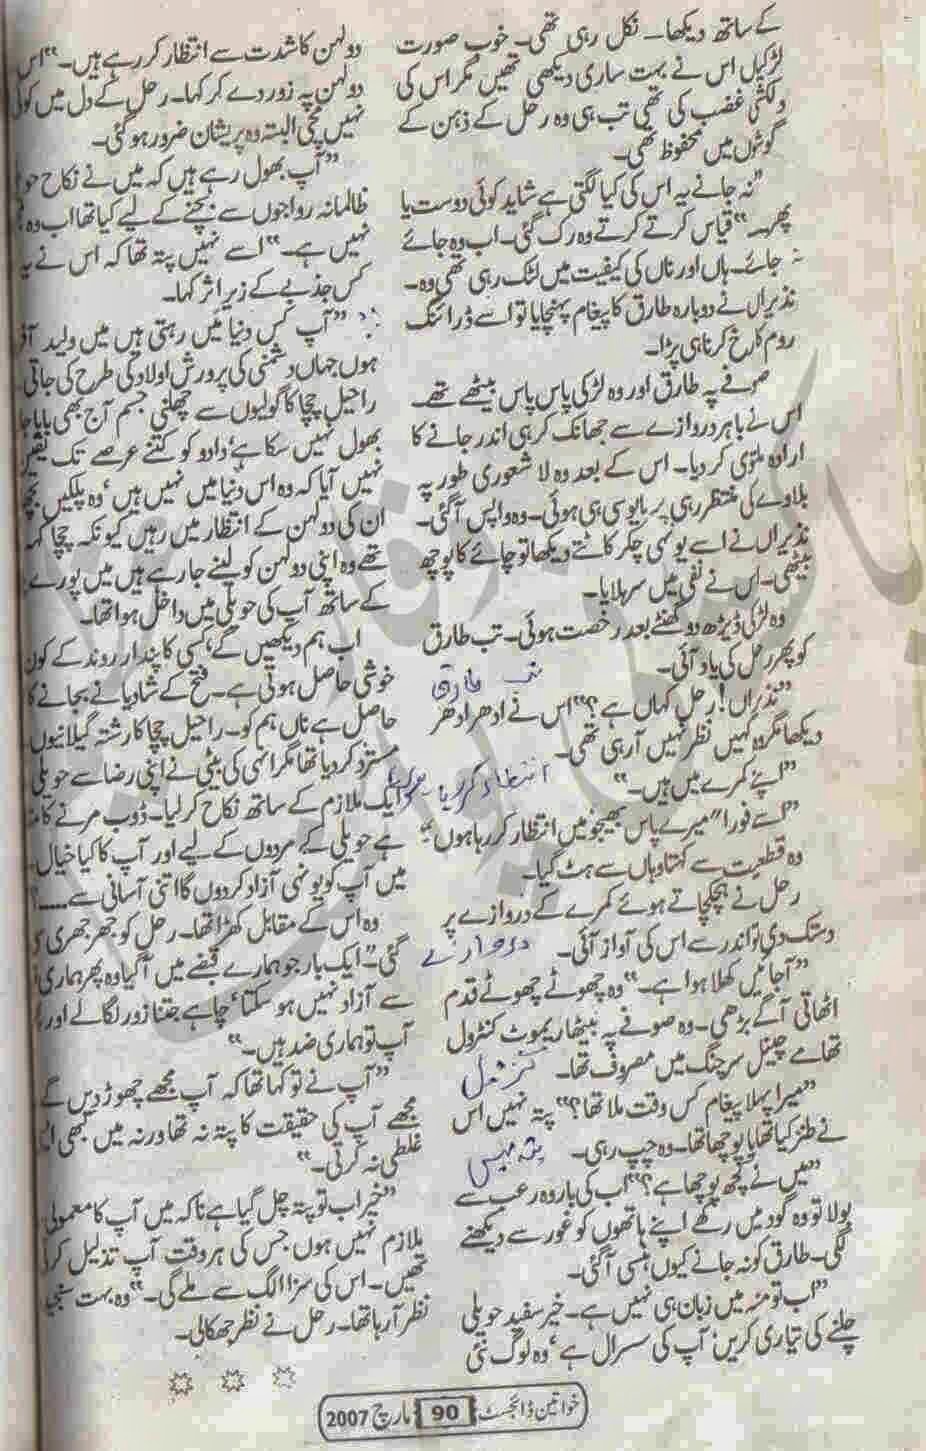 کے ساتھ دیکھا۔ نکل رہی تھی۔ خوب صورت
لڑکیاں اس نے بہت ساری دیکھی تھیں مگر اس کی
دلکشی غضب کی تھی تب ہی وہ رحل کے ذہن کے
گوشوں میں محفوظ تھی۔
"نہ جانے یہ اس کی کیا لگتی ہے شاید کوئی دوست یا
پھر۔" قیاس کرتے کرتے وہ رک گئی۔ اب وہ جائے
نہ جائے۔ ہاں اور ناں کی کیفیت میں لٹک رہی تھی وہ۔
نذیراں نے دوبارہ طارق کا پیغام پہنچایا تو اسے ڈرائنگ
روم کا رخ کرنا ہی پڑا۔
صوفے پہ طارق اور وہ لڑکی پاس پاس بیٹھے تھے۔
اس نے باہر دروازے سے جھانک کر ہی اندر جانے کا
ارادہ ملتوی کر دیا۔ اس کے بعد وہ لا شعوری طور پہ
بلاوے کی منتظر رہی پر مایوسی ہی ہوئی۔ وہ واپس آگئی۔
نذیراں نے اسے یونہی چکر کاٹتے دیکھا تو چائے کا پوچھ
بیٹھی۔ اس نے نفی میں سر ہلایا۔
وہ لڑکی ڈیڑھ دو گھنٹے بعد رخصت ہوئی۔ تب طارق
کو پھر رحل کی یاد آئی۔
تب طارق
"نذیراں! رحل کہاں ہے؟" اس نے ادھر ادھر
دیکھا مگر وہ کہیں نظر نہیں آرہی تھی۔
"اپنے کمرے میں ہیں۔"
انتظار کر رہا ہوں
"اسے فورا" میرے پاس بھیجو میں انتظار کر رہا ہوں۔"
وہ قطعیت سے کہتا وہاں سے ہٹ گیا۔
رحل نے ہچکچاتے ہوئے کمرے کے دروازے پر
دستک دی تو اندر سے اس کی آواز آئی۔
دروازے
"آجائیں کھلا ہوا ہے۔" وہ چھوٹے چھوٹے قدم
اٹھاتی آگے بڑھی۔ وہ صوفے پہ بیٹھا ریموٹ کنٹرول
تھامے چینل سرچنگ میں مصروف تھا۔
کنٹرول
"میرا پہلا پیغام کس وقت ملا تھا؟" پتہ نہیں اس
نے طنز کیا تھا یا پوچھا تھا۔ وہ چپ رہی۔
پتہ نہیں
"میں نے کچھ پوچھا ہے؟" اب کی بار وہ رعب سے
بولا تو وہ گود میں رکھے اپنے ہاتھوں کو غور سے دیکھنے
لگی۔ طارق کو نہ جانے کیوں ہنسی آگئی۔
"اب تو منہ میں زبان ہی نہیں ہے۔ خیر سفید حویلی
چلنے کی تیاری کریں' آپ کی سسرال ہے' وہ لوگ نئی
دولہن کا شدت سے انتظار کر رہے ہیں۔" اس
دولہن پہ زور دے کر کہا۔ رحل کے دل میں کوئی
نہیں مچی البتہ وہ پریشان ضرور ہو گئی۔
"آپ بھول رہے ہیں کہ میں نے نکاح
ظالمانہ رواجوں سے بچنے کے لیے کیا تھا اب وہ
نہیں ہے۔" اسے نہیں پتہ تھا کہ اس نے یہ
کس جذبے کے زیر اثر کہا۔
"آپ کس دنیا میں رہتی ہیں میں ولید
ہوں جہاں دشمنی کی پرورش اولاد کی طرح کی جاتی
راحیل چچا کا گولیوں سے چھلنی جسم آج بھی بابا
بھول نہیں سکا ہے' دادو کو کتنے عرصے تک یقین
نہیں آیا کہ وہ اس دنیا میں نہیں ہیں' وہ پلکیں
ان کی دولہن کے انتظار میں رہیں کیونکہ چچا کہہ
تھے وہ اپنی دولہن کو لینے جا رہے ہیں میں پورے
کے ساتھ آپ کی حویلی میں داخل ہوا تھا۔
اب ہم دیکھیں گے' کسی کا پندار روند کے کون
خوشی حاصل ہوتی ہے۔ فتح کے شادیانے بجانے کا
حاصل ہے ناں ہم کو۔ راحیل چچا کا رشتہ گیلانیوں
مسترد کر دیا تھا مگر انہی کی بیٹی نے اپنی رضا سے حویلی
ایک ملازم کے ساتھ نکاح کر لیا۔ ڈوب مرنے کا مقام
ہے حویلی کے مردوں کے لیے اور آپ کا کیا خیال
میں آپ کو یونہی آزاد کر دوں گا اتنی آسانی سے......؟
وہ اس کے مقابل کھڑا تھا۔ رحل کو جھرجھری سی
گئی۔ "ایک بار جو ہمارے قبضے میں آگیا وہ پھر ہماری
سے آزاد نہیں ہو سکتا' چاہے جتنا زور لگا لے اور
آپ تو ہماری ضد ہیں۔"
"آپ نے تو کہا تھا کہ آپ مجھے چھوڑ دیں گے
مجھے آپ کی حقیقت کا پتہ نہ تھا ورنہ میں کبھی
غلطی نہ کرتی۔"
"خیر اب تو پتہ چل گیا ہے نا کہ میں آپ کا معمولی
ملازم نہیں ہوں جس کی ہر وقت آپ تذلیل کرتی
تھیں۔ اس کی سزا الگ سے ملے گی۔" وہ بہت
نظر آرہا تھا۔ رحل نے نظر جھکا لی۔
خواتین ڈائجسٹ 90 مارچ 2007